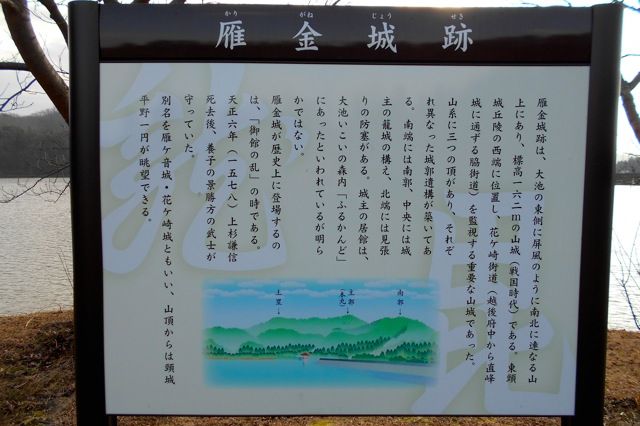 雁金城跡
かり がね じょう せき
雁金城跡は、大池の東側に屏風のように南北に連なる山
上にあり、標高一六二mの山城(戦国時代)である。東頸
城丘陵の西端に位置し、花ヶ崎街道(越後府中から直峰
城に通ずる脇街道)を監視する重要な山城であった。
山系に三つの頂があり、それぞ
れ異なった城郭遺構が築いてあ
る。南端には南郭、中央には城
主の籠城の構え、北端には見張
りの防塞がある。城主の居館は、
大池いこいの森内「ふるかんど」
にあったといわれているが明ら
かではない。
雁金城が歴史上に登場するの
は、「御館の乱」の時である。
天正六年(一五七八)上杉謙信
死去後、養子の景勝方の武士が
守っていた。
別名を雁ヶ音城・花ヶ崎城ともいい、山頂からは頸城
平野一円が眺望できる。
南郭
主郭
(本丸)
土塁